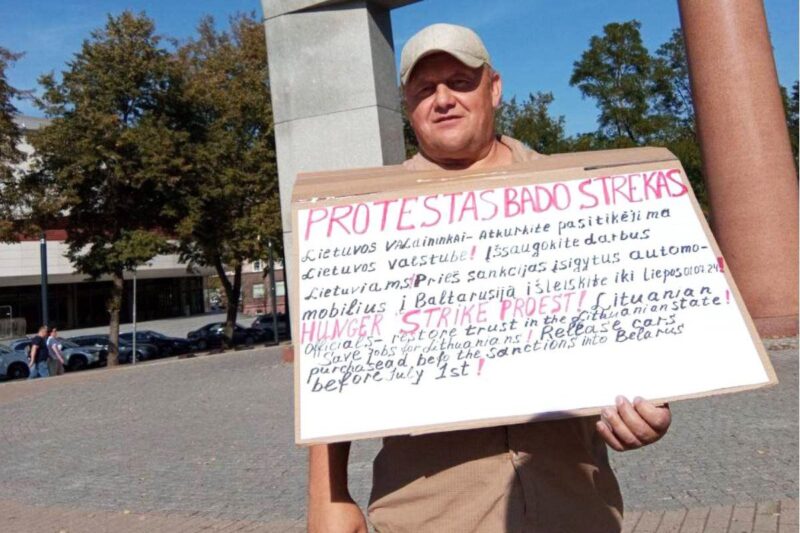 PROTESTAS BADO STREKAS
Lietuvos VALdininkai- Atkurkite pasitikėjima
Lietuvos valstube! Išsaugokite darbus
Lietuviams! Prieš sankcijas įsigytus automo-
mobilius į Baltarusiją išleiskite iki liepos 01.07.24!
HUNGER STRIKE PROEST! Lituanian
Officials- restore trust in the Lithuanian state!
Save jobs for Lithuanians! Release cars
purchasead befo the sanctions into Belarus
before July 1st!